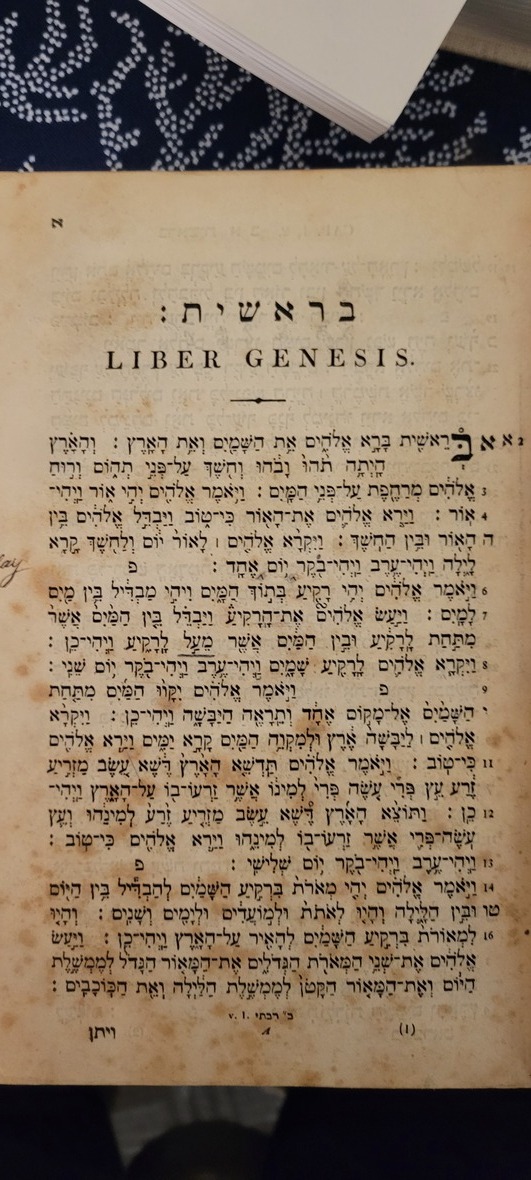 א
בראשית :
LIBER GENESIS.
א א 2 בְּרֵאשִׁית בָּרָא אֱלֹהִים אֵת הַשָּׁמַיִם וְאֵת הָאָרֶץ : וְהָאָרֶץ
הָיְתָה תֹהוּ וָבֹהוּ וְחֹשֶׁךְ עַל־פְּנֵי תְהוֹם וְרוּחַ
3 אֱלֹהִים מְרַחֶפֶת עַל־פְּנֵי הַמָּיִם : וַיֹּאמֶר אֱלֹהִים יְהִי אוֹר וַיְהִי־
4 אוֹר : וַיַּרְא אֱלֹהִים אֶת־הָאוֹר כִּי־טוֹב וַיַּבְדֵּל אֱלֹהִים בֵּין
ה הָאוֹר וּבֵין הַחֹשֶׁךְ : וַיִּקְרָא אֱלֹהִים ׀ לָאוֹר יוֹם וְלַחֹשֶׁךְ קָרָא
לָיְלָה וַיְהִי־עֶרֶב וַיְהִי־בֹקֶר יוֹם אֶחָד : פ
6 וַיֹּאמֶר אֱלֹהִים יְהִי רָקִיעַ בְּתוֹךְ הַמָּיִם וִיהִי מַבְדִּיל בֵּין מַיִם
7 לָמָיִם : וַיַּעַשׂ אֱלֹהִים אֶת־הָרָקִיעַ וַיַּבְדֵּל בֵּין הַמַּיִם אֲשֶׁר
מִתַּחַת לָרָקִיעַ וּבֵין הַמַּיִם אֲשֶׁר מֵעַל לָרָקִיעַ וַיְהִי־כֵן :
8 וַיִּקְרָא אֱלֹהִים לָרָקִיעַ שָׁמָיִם וַיְהִי־עֶרֶב וַיְהִי־בֹקֶר יוֹם שֵׁנִי :
9 פ וַיֹּאמֶר אֱלֹהִים יִקָּווּ הַמַּיִם מִתַּחַת
י הַשָּׁמַיִם אֶל־מָקוֹם אֶחָד וְתֵרָאֶה הַיַּבָּשָׁה וַיְהִי־כֵן : וַיִּקְרָא
אֱלֹהִים ׀ לַיַּבָּשָׁה אֶרֶץ וּלְמִקְוֵה הַמַּיִם קָרָא יַמִּים וַיַּרְא אֱלֹהִים
11 כִּי־טוֹב : וַיֹּאמֶר אֱלֹהִים תַּדְשֵׁא הָאָרֶץ דֶּשֶׁא עֵשֶׂב מַזְרִיעַ
זֶרַע עֵץ פְּרִי עֹשֶׂה פְּרִי לְמִינוֹ אֲשֶׁר זַרְעוֹ־בוֹ עַל־הָאָרֶץ וַיְהִי־
12 כֵן : וַתּוֹצֵא הָאָרֶץ דֶּשֶׁא עֵשֶׂב מַזְרִיעַ זֶרַע לְמִינֵהוּ וְעֵץ
עֹשֶׂה־פְּרִי אֲשֶׁר זַרְעוֹ־בוֹ לְמִינֵהוּ וַיַּרְא אֱלֹהִים כִּי־טוֹב :
13 וַיְהִי־עֶרֶב וַיְהִי־בֹקֶר יוֹם שְׁלִישִׁי : פ
14 וַיֹּאמֶר אֱלֹהִים יְהִי מְאֹרֹת בִּרְקִיעַ הַשָּׁמַיִם לְהַבְדִּיל בֵּין הַיּוֹם
טו וּבֵין הַלָּיְלָה וְהָיוּ לְאֹתֹת וּלְמוֹעֲדִים וּלְיָמִים וְשָׁנִים : וְהָיוּ
16 לִמְאוֹרֹת בִּרְקִיעַ הַשָּׁמַיִם לְהָאִיר עַל־הָאָרֶץ וַיְהִי־כֵן : וַיַּעַשׂ
אֱלֹהִים אֶת־שְׁנֵי הַמְּאֹרֹת הַגְּדֹלִים אֶת־הַמָּאוֹר הַגָּדֹל לְמֶמְשֶׁלֶת
הַיּוֹם וְאֶת־הַמָּאוֹר הַקָּטֹן לְמֶמְשֶׁלֶת הַלַּיְלָה וְאֵת הַכּוֹכָבִים :
v. 1. ב״ רבתי
ויתן A (1)